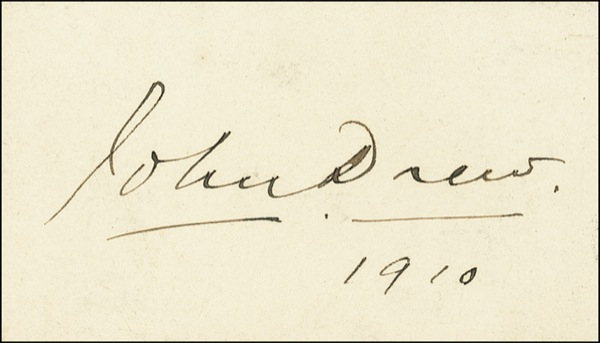 John Drew.
1910